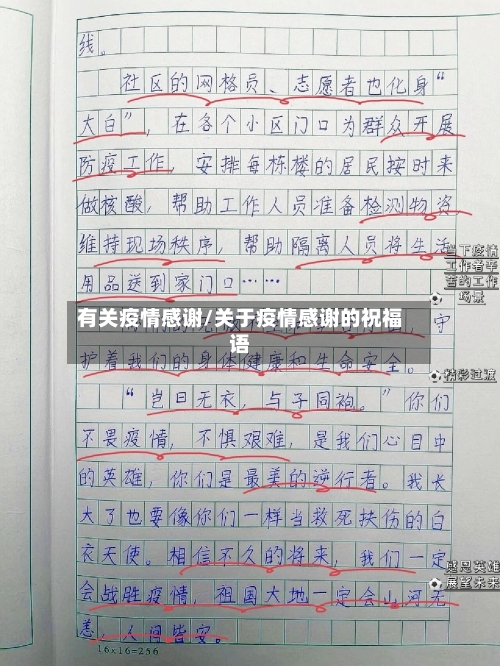 线。
社区的网格员、志愿者也化身“
大白”，在各个小区门口为群众开展
防疫工作，安排每栋楼的居民按时来
做核酸，帮助工作人员准备检测物资
维持现场秩序，帮助隔离人员将生活
用品送到家门口……
当下疫情
工作者辛
苦的工作
场景
有关疫情感谢/关于疫情感谢的祝福
语
守
护着我们的身体健康和生命安全。
精彩过渡
“岂曰无衣，与子同袍。”你们
不畏疫情，不惧艰难，是我们心目中
的英雄，你们是最美的逆行者。我长
大了也要像你们一样当救死扶伤的白
衣天使。相信不久的将来，我们一定
会战胜疫情，祖国大地一定会山河无
恙，人间皆安。
感恩英雄
展望未来
16×16=256